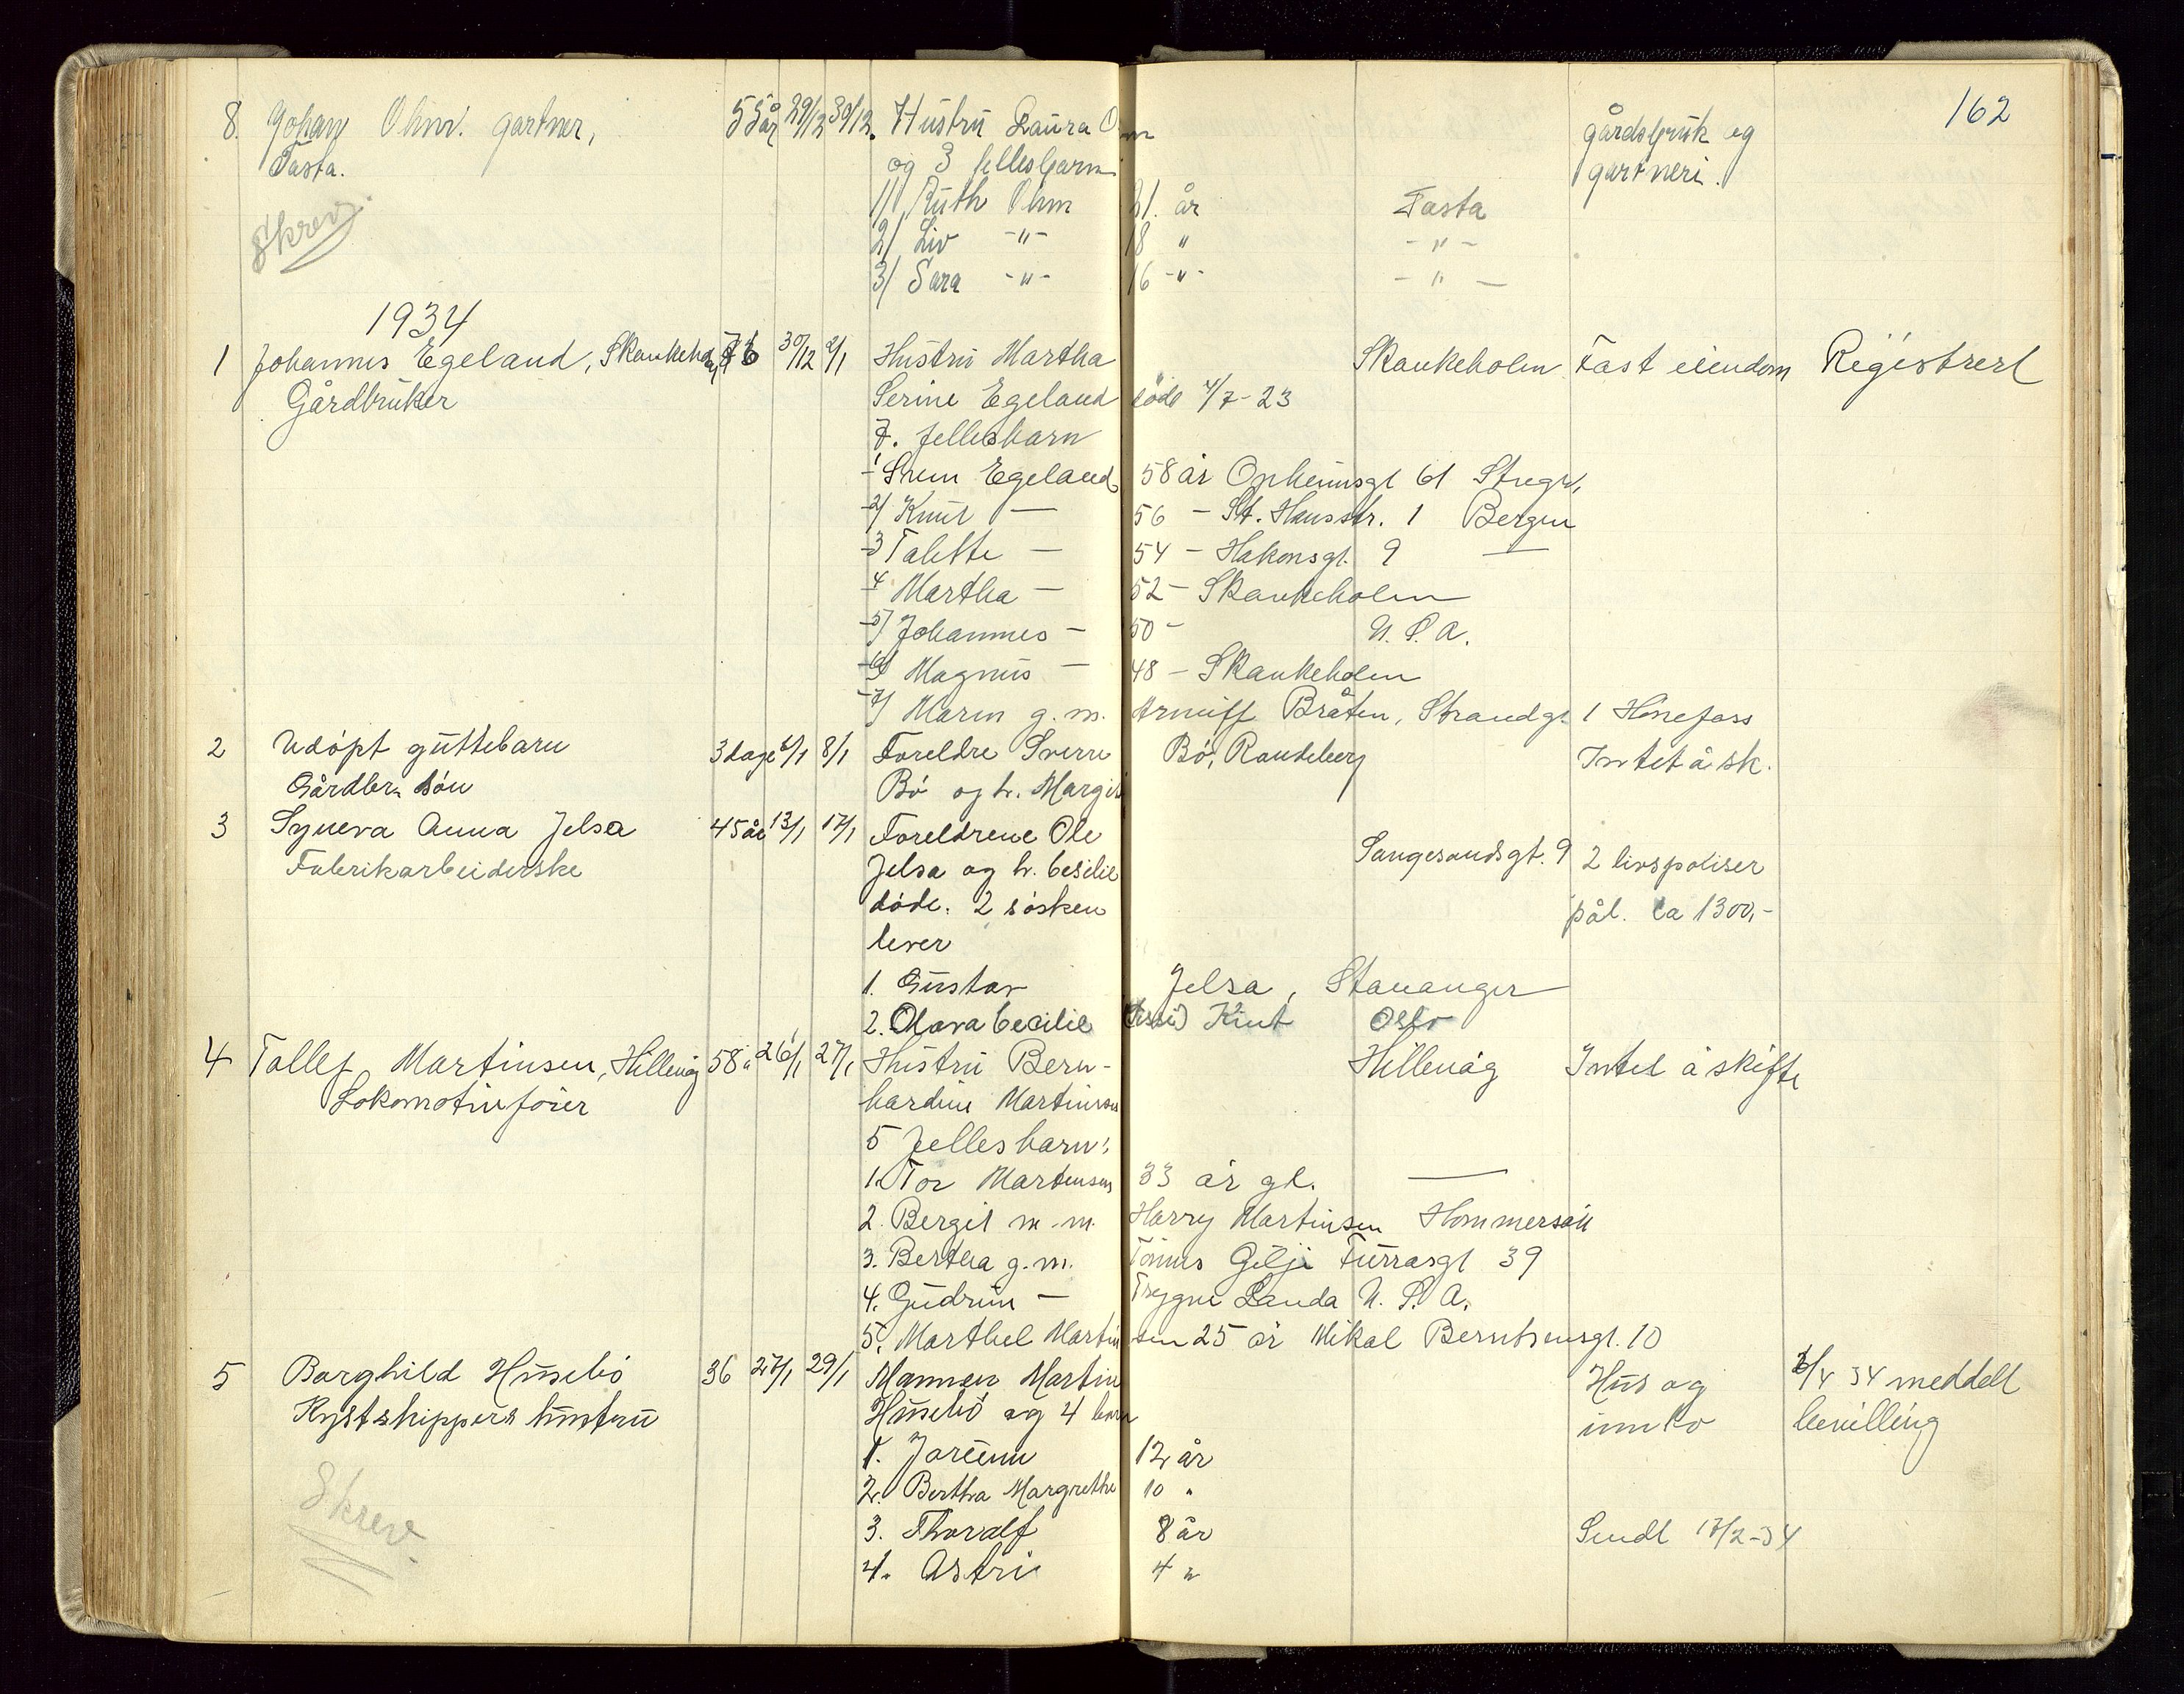 162
8. Johan Ohm. gartner, 55 år 29/12 30/12. Hustru Laura Ohm gårdsbruk og
Tasta. og 3 fellesbarn gartneri.
1/ Ruth Ohm 21. år Tasta
Skrev. 2/ Liv -"- 18 " -"-
3/ Sara -"- 16 -"- -"-
1934
1 Johannes Egeland, Skankeholm 30/12 2/1 Hustru Martha Skankeholm Fast eiendom Registrert
Gårdbruker Serine Egeland död 4/7-23
7. fellesbarn
1 Egeland 58 år 61
2/ Knut — 56 - St. Hansstr. 1 Bergen
3 Talette — 54 - Hakonsgt. 9 —
4 Martha — 52 - Skankeholm
5/ Johannes — 50 - U.S.A.
6/ Magnus — 48 - Skankeholm
7/ Maren g.m. Bråten, Strandgt 1 Hönefoss
2 Udöpt guttebarn 3 dage 6/1 8/1 Foreldre Sverre Bö, Randeberg Intet å sk.
Gårdbr. sön Bö og h. Margit
3 Syneva Anna Jelsa 45 år 13/1 17/1 Foreldrene Ole
Fabrikarbeiderske Jelsa og h. Cesilie Sangesandsgt. 9 2 livspoliser
döde. 2 sösken pål. ca 1300,-
lever
1. Gustav Jelsa, Stavanger
2. Olava Cecilie Oslo
4 Tollef Martinsen, Hillevåg 58 " 26/1 27/1 Hustru Bern- Hillevåg Intet å skifte
Lokomotivförer hardine Martinsen
5 Fellesbarn:
1. Tor Martinsen 33 år gl. —
2. Bergit m.m. Harry Martinsen Hommersåk
3. Bertha g.m. Tönnes Gilje Furrasgt 39
4. Gudrun — Trygve Landa U.S.A.
5. Marthel Martinsen 25 år Mikal Berntsensgt. 10
5 Borghild Husebö 36 27/1 29/1 Mannen Martin Hus og 3/4 34 meddelt
Kystskippers hustru Husebö og 4 barn innbo bevilling
1. Joreunn 12 år
Skrev. 2. Bertha Margrethe 10 "
3. Thoralf 8 år Sendt 17/2-34
4. Astri 4 "